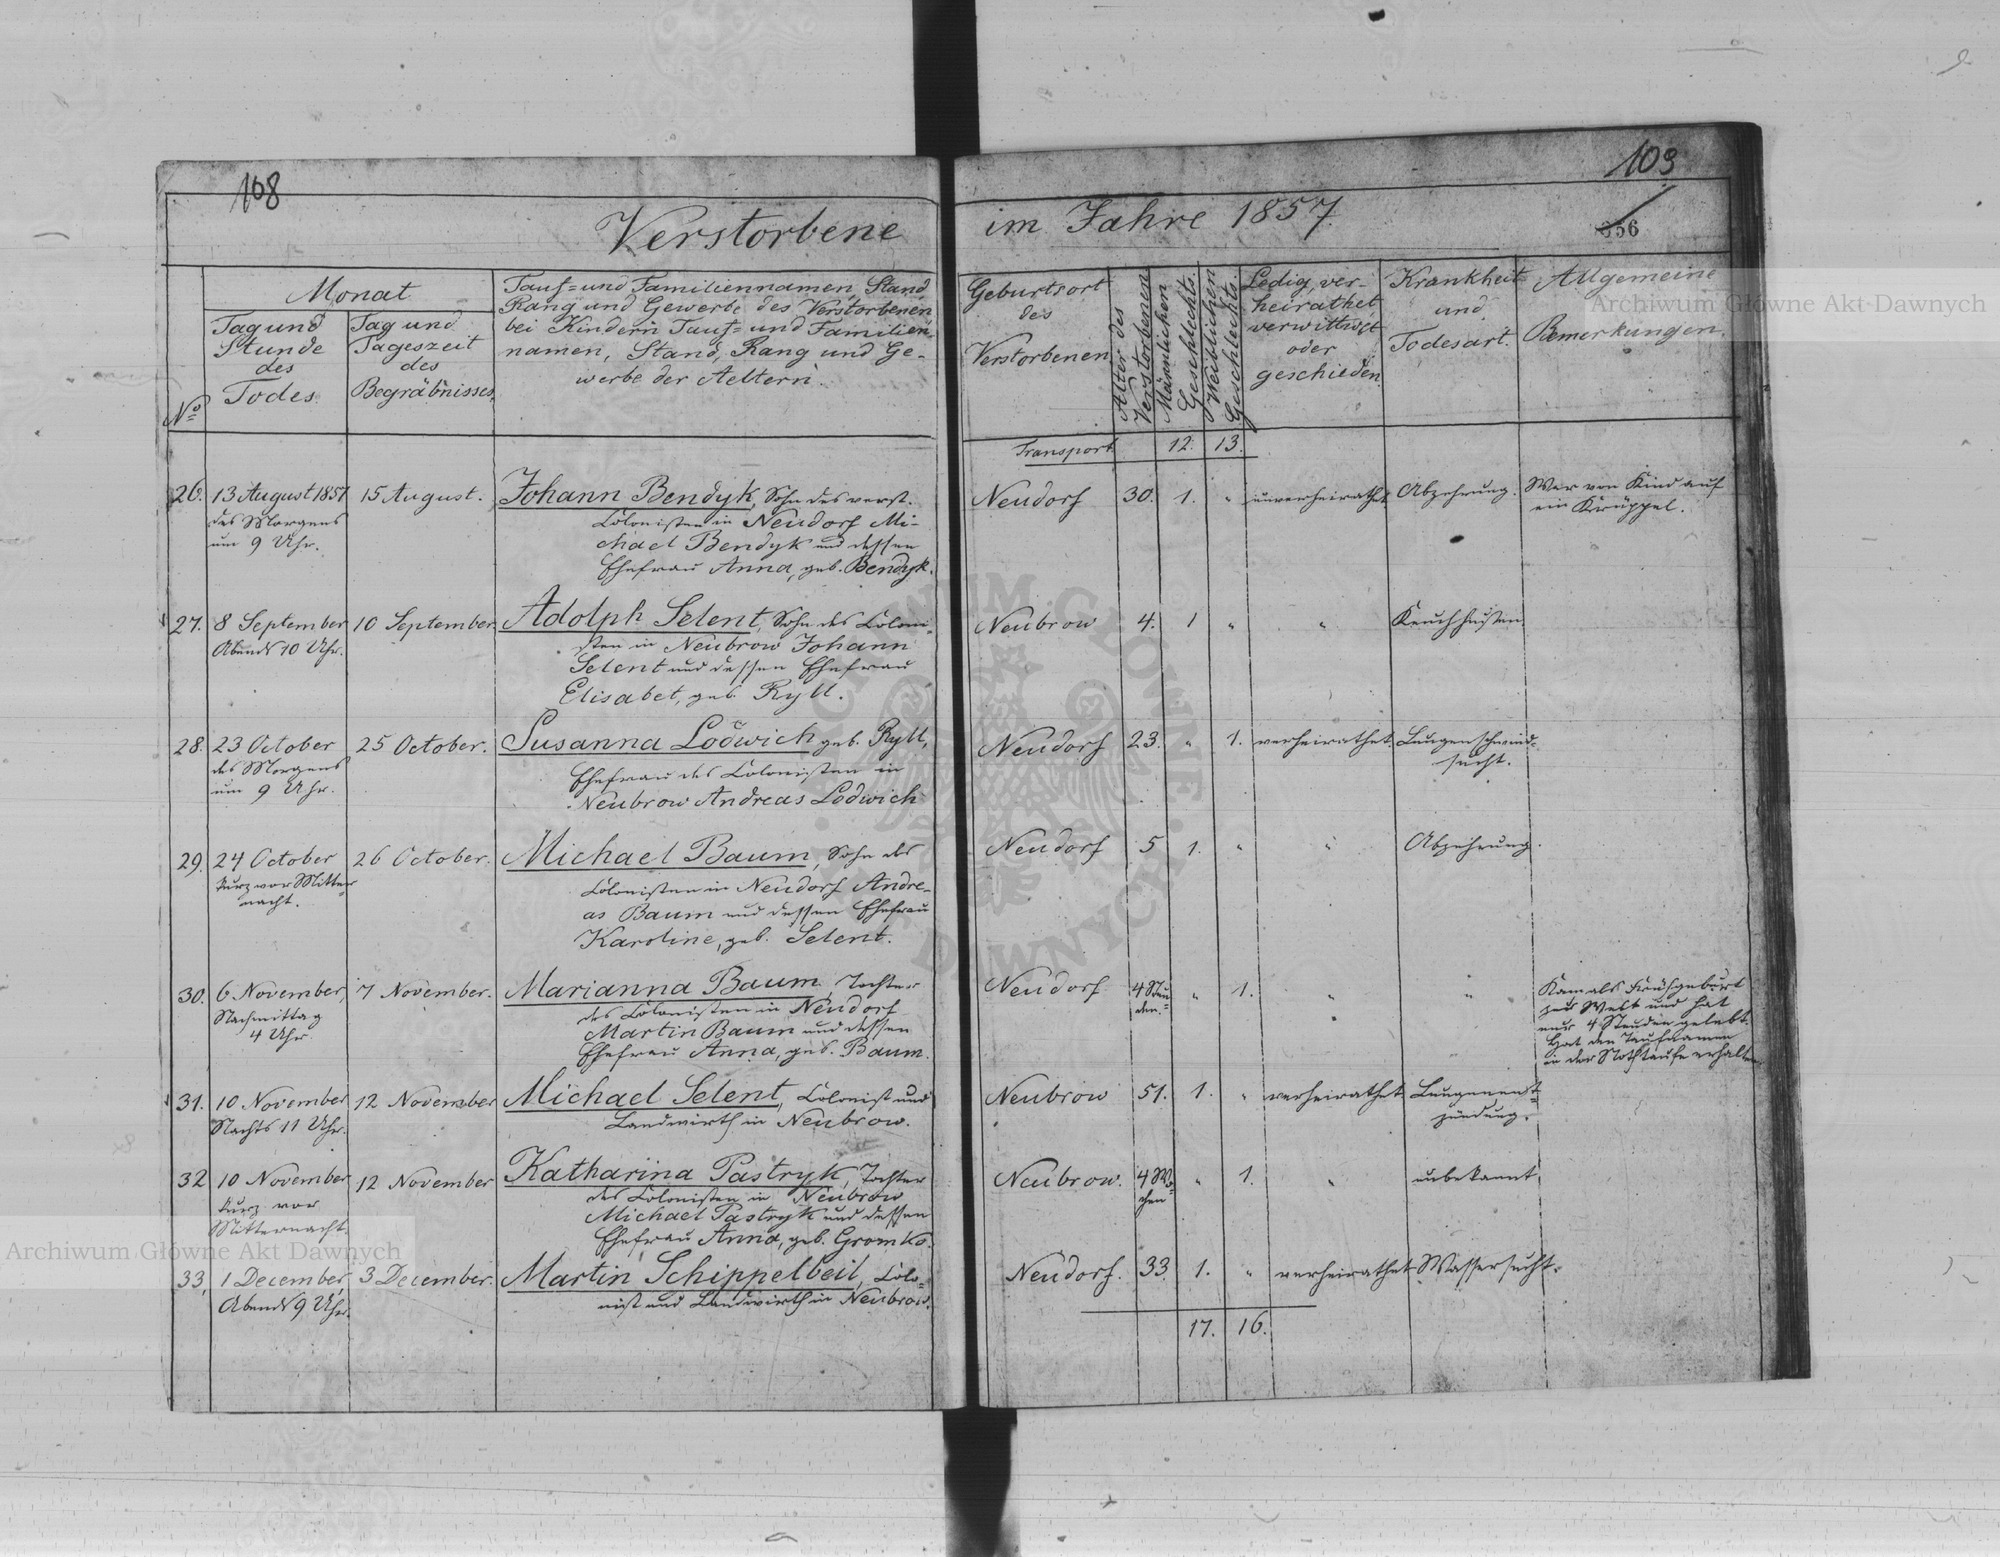 108
Verstorbene
Monat
Nº
Tag und
Stunde
des
Todes.
Tag und
Tageszeit
des
Begräbnisses.
Tauf= und Familiennamen, Stand
Rang und Gewerbe des Verstorbenen
bei Kindern Tauf= und Familien-
namen, Stand, Rang und Ge-
werbe der Aeltern.
26. 13 August 1857 15 August. Johann Bendyk, Sohn des verst.
des Morgens Colonisten in Neudorf Mi-
um 9 Uhr. chael Bendyk und dessen
Ehefrau Anna, geb. Bendyk.
27. 8 September 10 September. Adolph Selent, Sohn des Coloni-
Abends 10 Uhr. sten in Neubrow Johann
Selent und dessen Ehefrau
Elisabet, geb. Ryll.
28. 23 October 25 October. Susanna Lodwich geb. Ryll,
des Morgens Ehefrau des Colonisten in
um 9 Uhr. Neubrow Andreas Lodwich
29. 24 October 26 October. Michael Baum, Sohn des
kurz vor Mitter- Colonisten in Neudorf Andre-
nacht. as Baum und dessen Ehefrau
Karoline, geb. Selent.
30. 6 November, 7 November. Marianna Baum, Tochter
Nachmittag des Colonisten in Neudorf
4 Uhr. Martin Baum und dessen
Ehefrau Anna, geb. Baum.
31. 10 November 12 November Michael Selent, Colonist und
Nachts 11 Uhr. Landwirth in Neubrow.
32 10 November 12 November Katharina Pastryk, Tochter
kurz vor des Colonisten in Neubrow
Mitternacht. Michael Pastryk und dessen
Ehefrau Anna, geb. Gromko.
33, 1 December, 3 December. Martin Schippelbeil, Colo-
Abends 9 Uhr. nist und Landwirth in Neubrow.
Archiwum Główne Akt Dawnych
109
im Jahre 1857.
356
Geburtsort
des
Verstorbenen
Alter des
Verstorbenen
Männlichen
Geschlechts.
Weiblichen
Geschlechts.
Ledig, ver-
heirathet,
verwittwet
oder
geschieden.
Krankheit
und
Todesart.
Allgemeine
Bemerkungen.
Archiwum Główne Akt Dawnych
Transport 12. 13.
Neudorf 30. 1. " unverheirathet. Abzehrung. War von Kind auf
ein Krüppel.
Neubrow 4. 1 " " Keuchhusten
Neudorf 23. " 1. verheirathet. Lungenschwind-
sucht.
Neudorf 5 1. " " Abzehrung.
Neudorf 4 Stun- " 1. " " Kam als Frühgeburt
den. zur Welt und hat
nur 4 Stunden gelebt.
Hat den Taufnamen
in der Nothtaufe erhalten.
Neubrow 51. 1. " verheirathet Lungenent-
zündung.
Neubrow. 4 Wo- " 1. " unbekannt
chen
Neudorf. 33. 1. " verheirathet Wassersucht.
17. 16.
ARCHIWUM GŁÓWNE AKT DAWNYCH